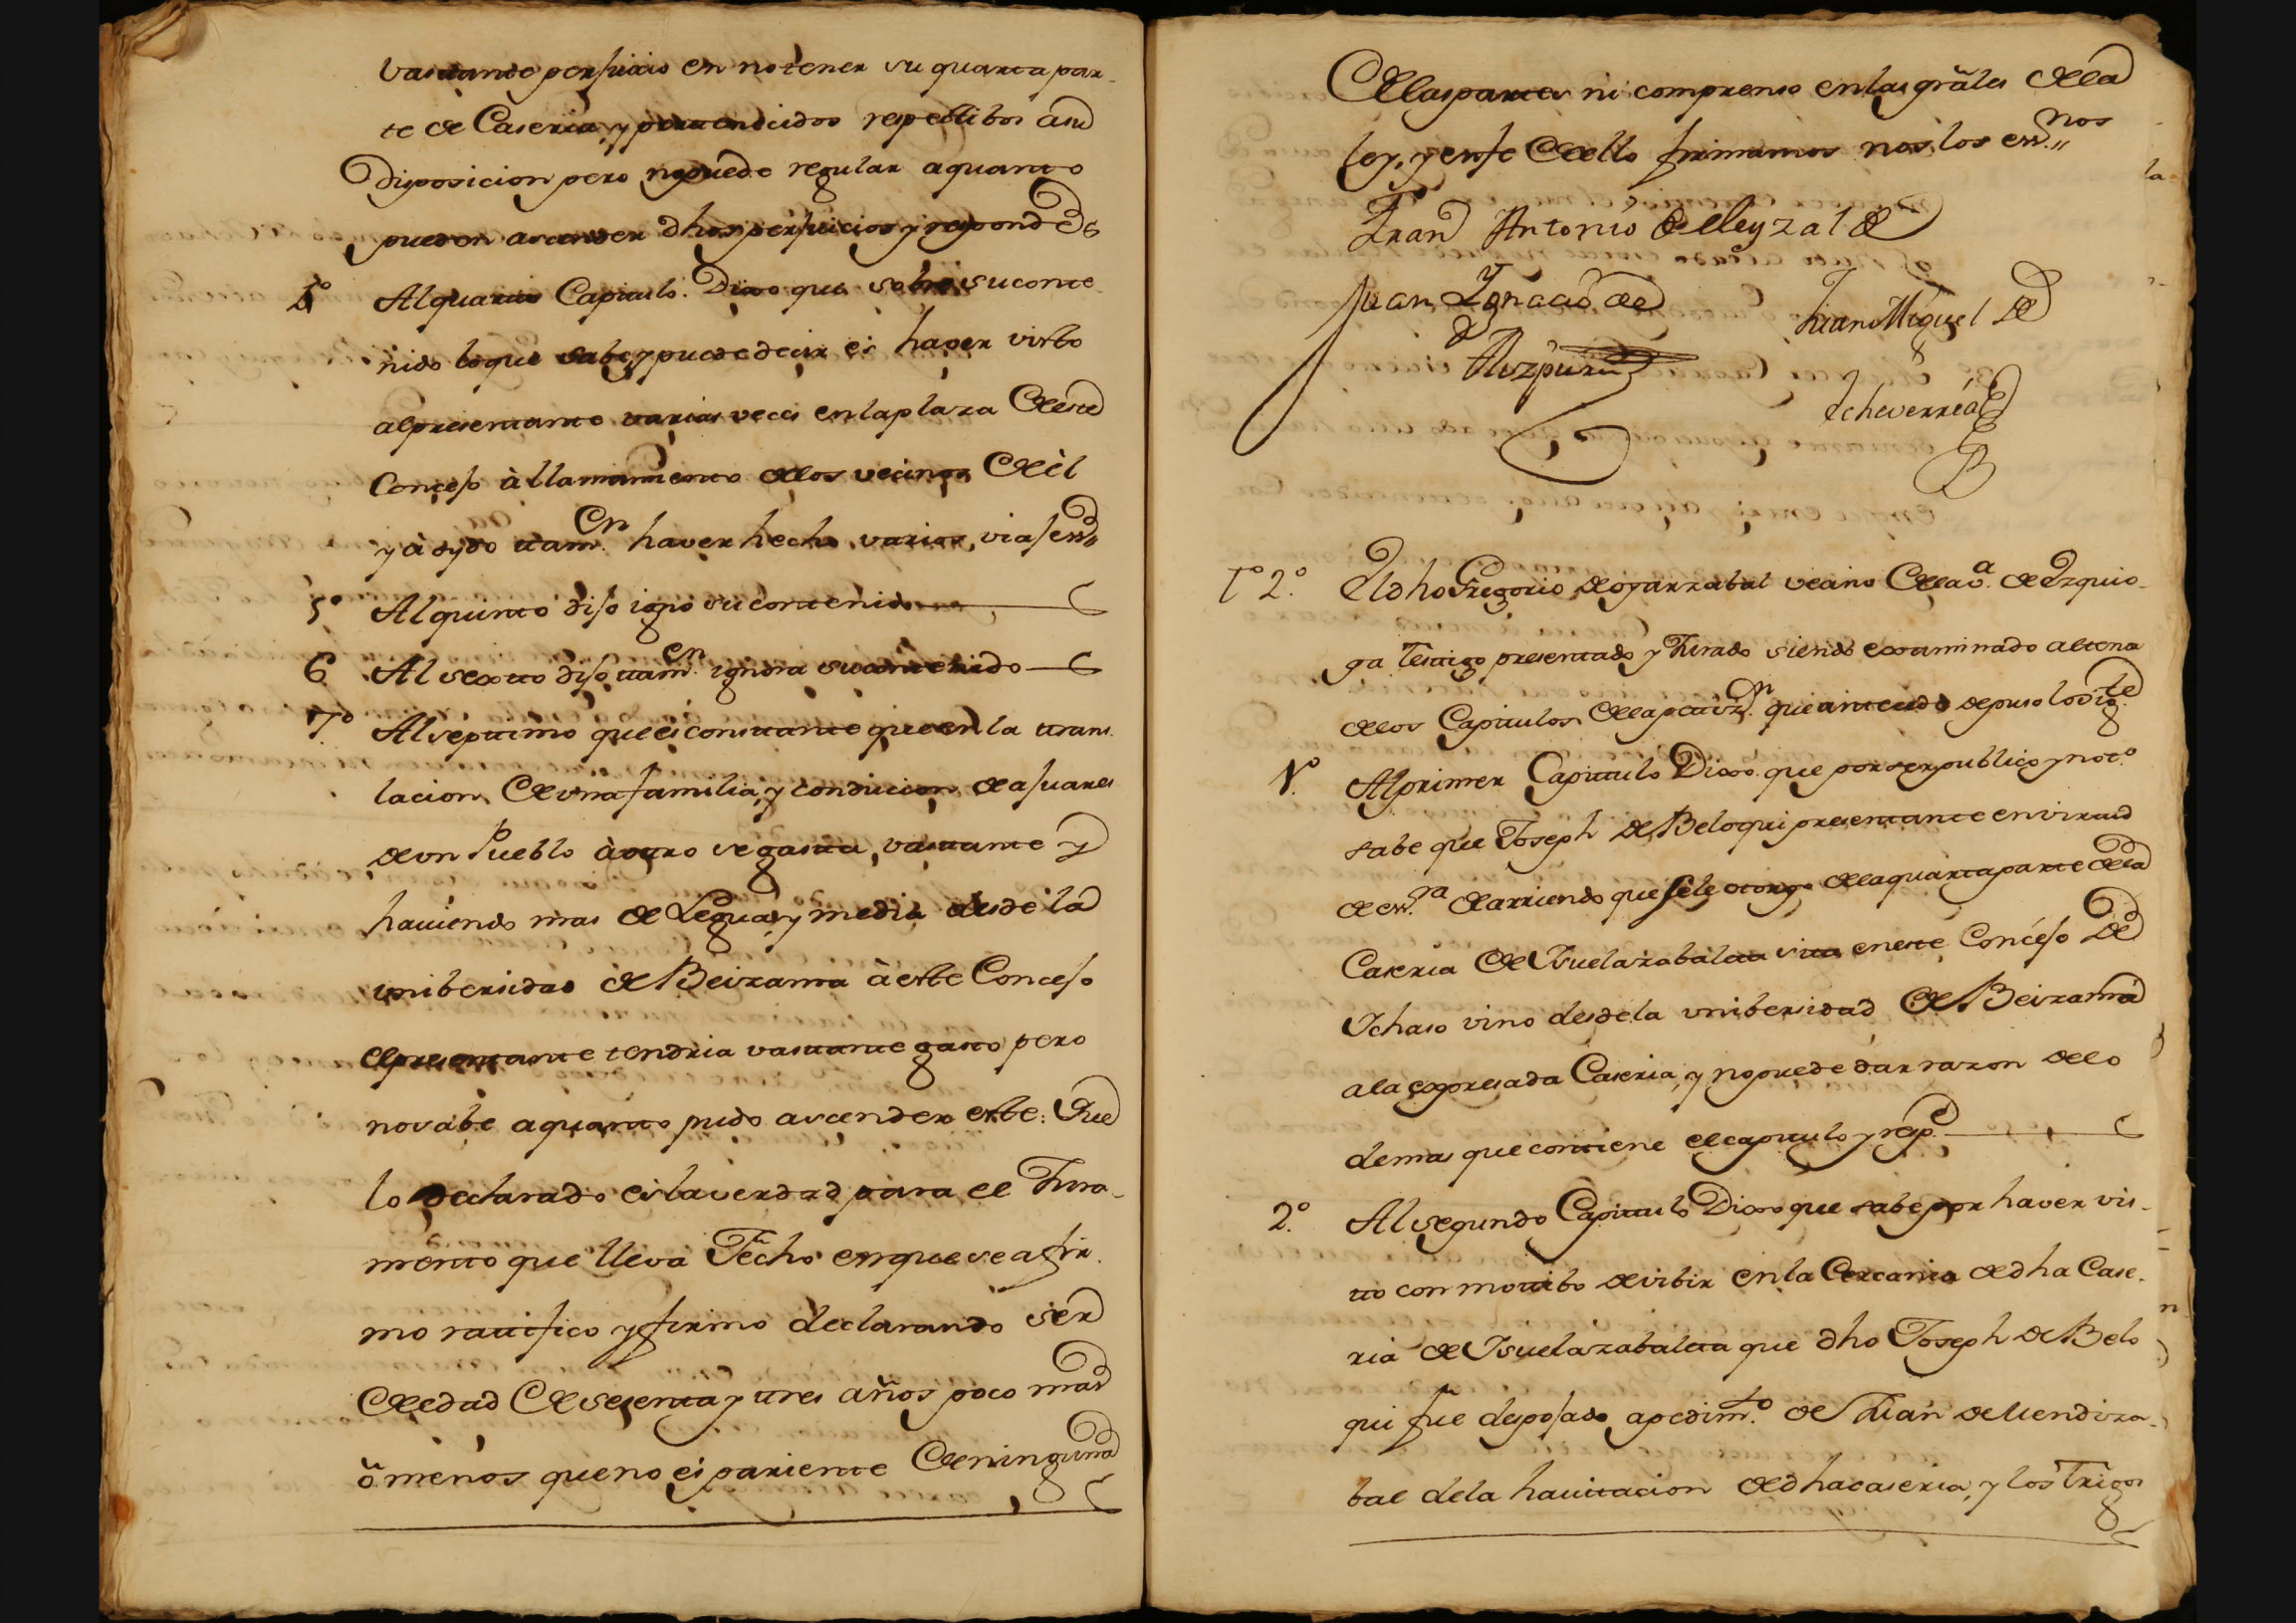 vastante perjuicio en no tener su quarta par-
te de Caseria, y pertendcidos respectibos asu
Disposicion pero nopuede regular aquanto
pueden ascender dhos perjuicios y respondde
4º Alquarto Capitulo. Dixo que sobre suconte
nido loque sabe y puede decir es haver visto
alpresentante varias veces enlaplaza de este
Concejo à llamamiento delos vecinos de èl
y à oydo tamen. haver hecho varios viajes,,
5º Alquinto dijo igno sucontenido
6 Al sexto dijo tamen. ignora sucontenido
7º Alseptimo que es constante que en la trans
lacion de vna familia, y condicion de ajuares
de vn Pueblo à otro se gasta, vastante y
haviendo mas de Legua, y media desde la
vnibersidad de Beizama à este Concejo
elpresentante tendria vastante gasto pero
nosabe aquanto pudo ascender este: Que
lo declarado es laverdad para el Jura-
mento que lleva Fecho enque se afir
mo ratifico y firmo declarando ser
de edad de sesenta y tres años poco mas
ò menos queno es pariente de ninguna
delaspartes ni comprenso enlas grãles dela
ley, y enfe de ello firmamos nos, los essnos,,
Fran Antonio de Eleyzalde
Juan Ygnacio de
Juan Miguel de
Aizpuru
Echeverria
Tº 2º. El dho Gregorio de oyarzabal vecino dela va. de Ezquio-
ga Testigo presentado y Jurado siendo examinado altenor
delos Capitulos delapetizn. que antecede depuso lo sigte
1º. Alprimer Capitulo Dixo que porserpublico y noto.
sabe que Joseph de Beloqui presentante en virtud
de essra de arriendo que se le otorgo delaquarta parte dela
Caseria de Ysuelazabaleta sita eneste Concejo de
Ychaso vino desdela vnibersidad de Beizama
ala expresada Caseria, y nopuede dar razon delo
demas que contiene el capitulo y respde
2º. Alsegundo Capitulo Dixo que sabe por haver vis-
to con motibo de vibir en la Cercania de dha Case-
ria de Ysuelazabaleta que dho Joseph de Belo
qui fue despojado apedimto. de Juan de Mendiza-
bal dela havitacion de dhacaseria, y los Trigos